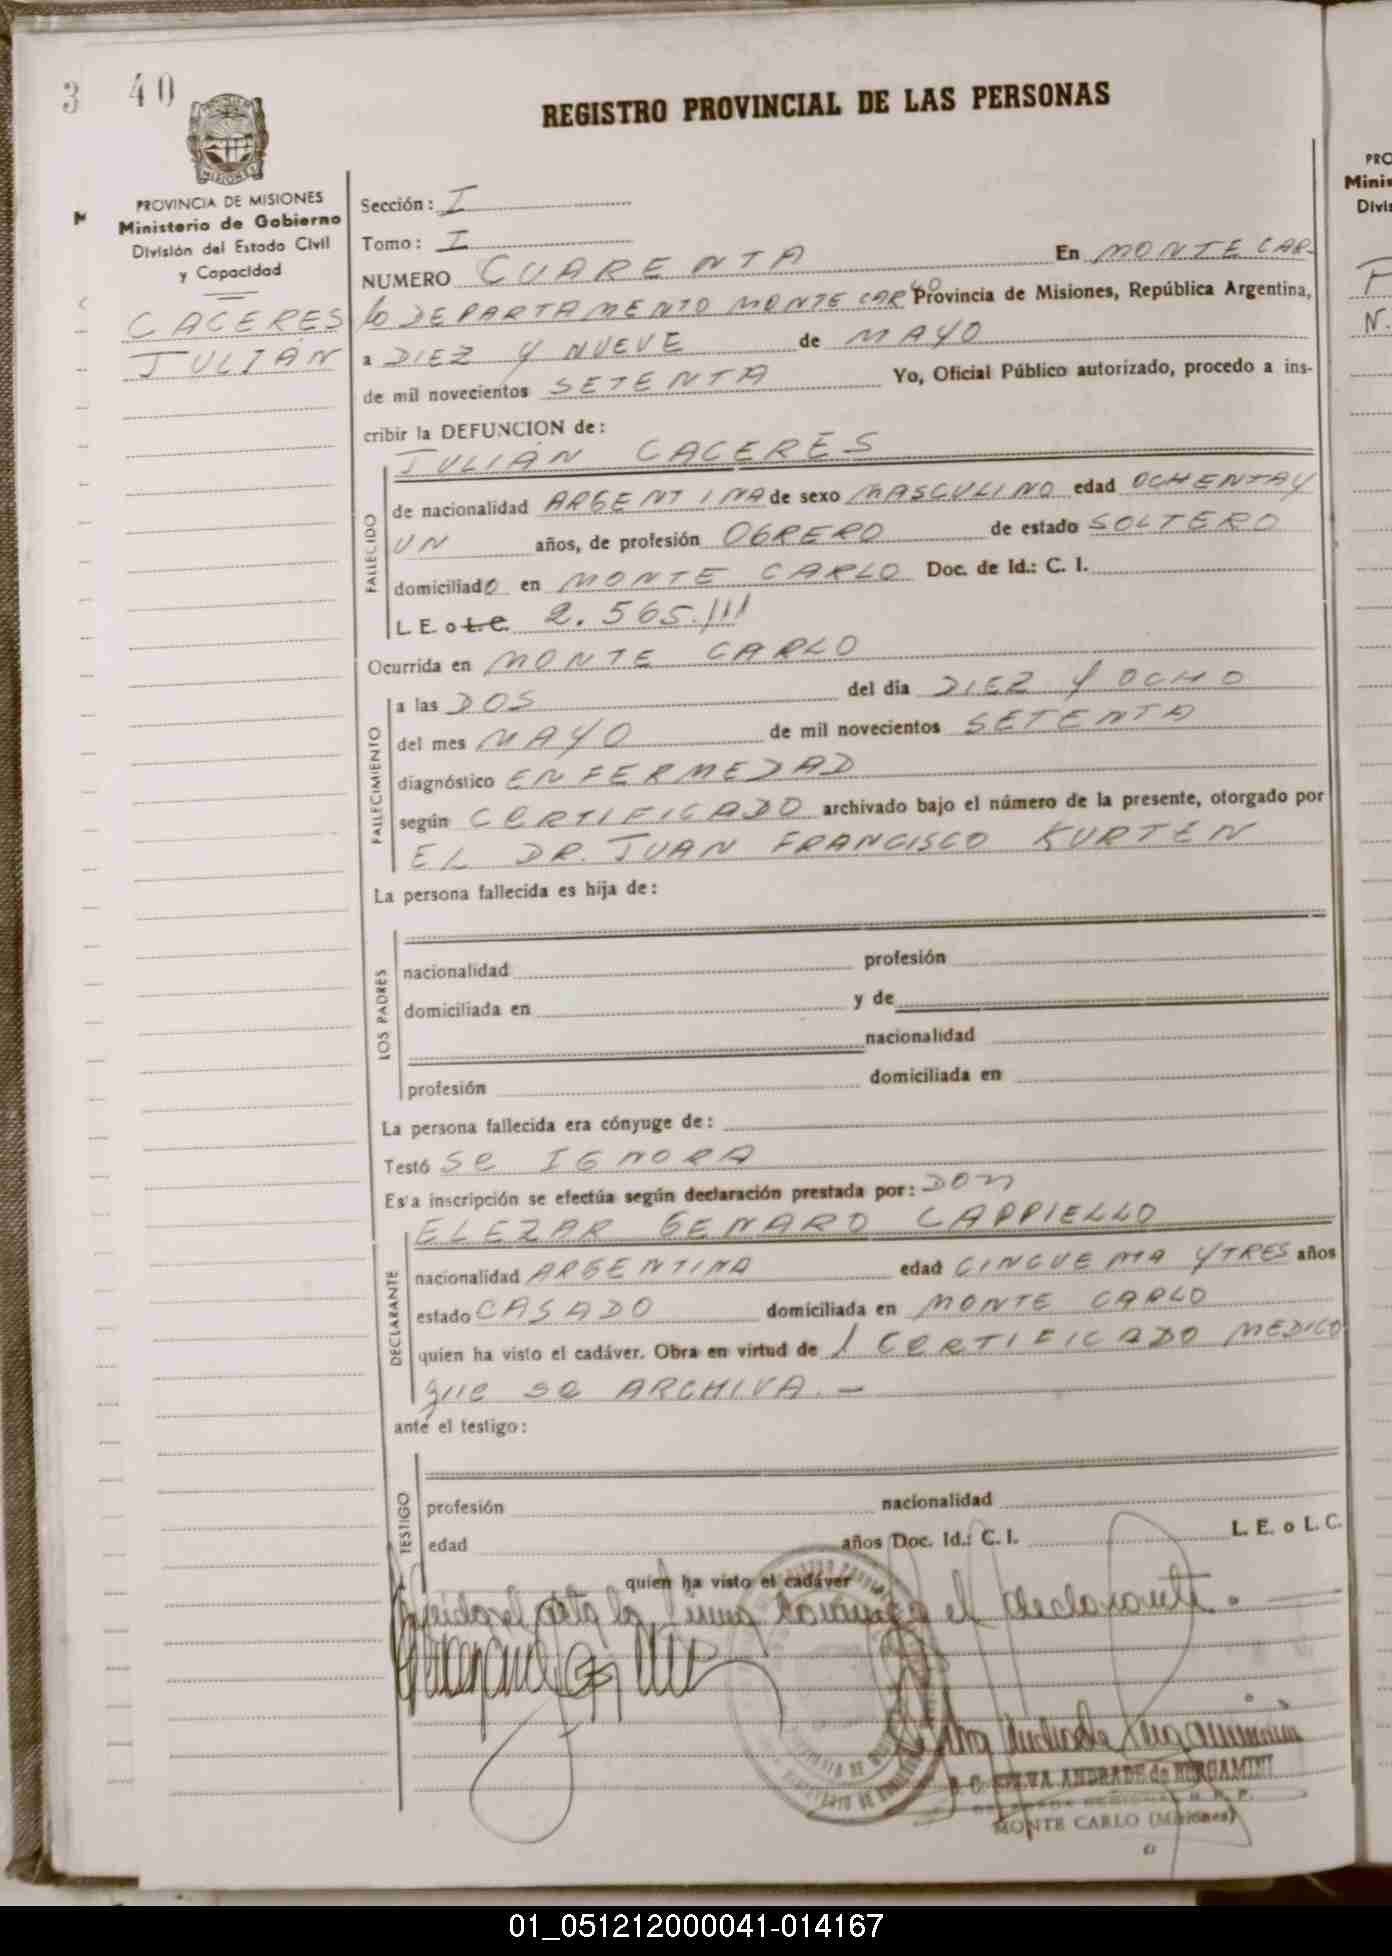 3 40
REGISTRO PROVINCIAL DE LAS PERSONAS
MISIONES
PROVINCIA DE MISIONES
Ministerio de Gobierno
División del Estado Civil
y Capacidad
CACERES
JULIÁN
Sección: I
Tomo: I
NUMERO CUARENTA En MONTE CAR-
lo DEPARTAMENTO MONTE CARLO Provincia de Misiones, República Argentina,
a DIEZ Y NUEVE de MAYO
de mil novecientos SETENTA Yo, Oficial Público autorizado, procedo a ins-
cribir la DEFUNCION de:
JULIÁN CACERES
FALLECIDO
de nacionalidad ARGENTINA de sexo MASCULINO edad OCHENTA Y
UN años, de profesión OBRERO de estado SOLTERO
domiciliado en MONTE CARLO Doc. de Id.: C. I.
L. E. o L.C. 2.565.111
Ocurrida en MONTE CARLO
FALLECIMIENTO
a las DOS del día DIEZ Y OCHO
del mes MAYO de mil novecientos SETENTA
diagnóstico ENFERMEDAD
según CERTIFICADO archivado bajo el número de la presente, otorgado por
EL DR. JUAN FRANCISCO KURTEN
La persona fallecida es hija de:
LOS PADRES
nacionalidad profesión
domiciliada en y de
nacionalidad
profesión domiciliada en
La persona fallecida era cónyuge de:
Testó se IGNORA
Es'a inscripción se efectúa según declaración prestada por: DON
ELEZAR GENARO CAPPIELLO
DECLARANTE
nacionalidad ARGENTINA edad CINCUENTA Y TRES años
estado CASADO domiciliada en MONTE CARLO
quien ha visto el cadáver. Obra en virtud de 1 CERTIFICADO MEDICO
que se ARCHIVA.-
ante el testigo:
TESTIGO
profesión nacionalidad
edad años Doc. Id.: C. I. L. E. o L. C.
quien ha visto el cadáver
el acta la firma conmigo el declarante.
SILVA ANDRADE de BERGAMINI
MONTE CARLO (Misiones)
PRO
Minis
Divis
N.
01_051212000041-014167